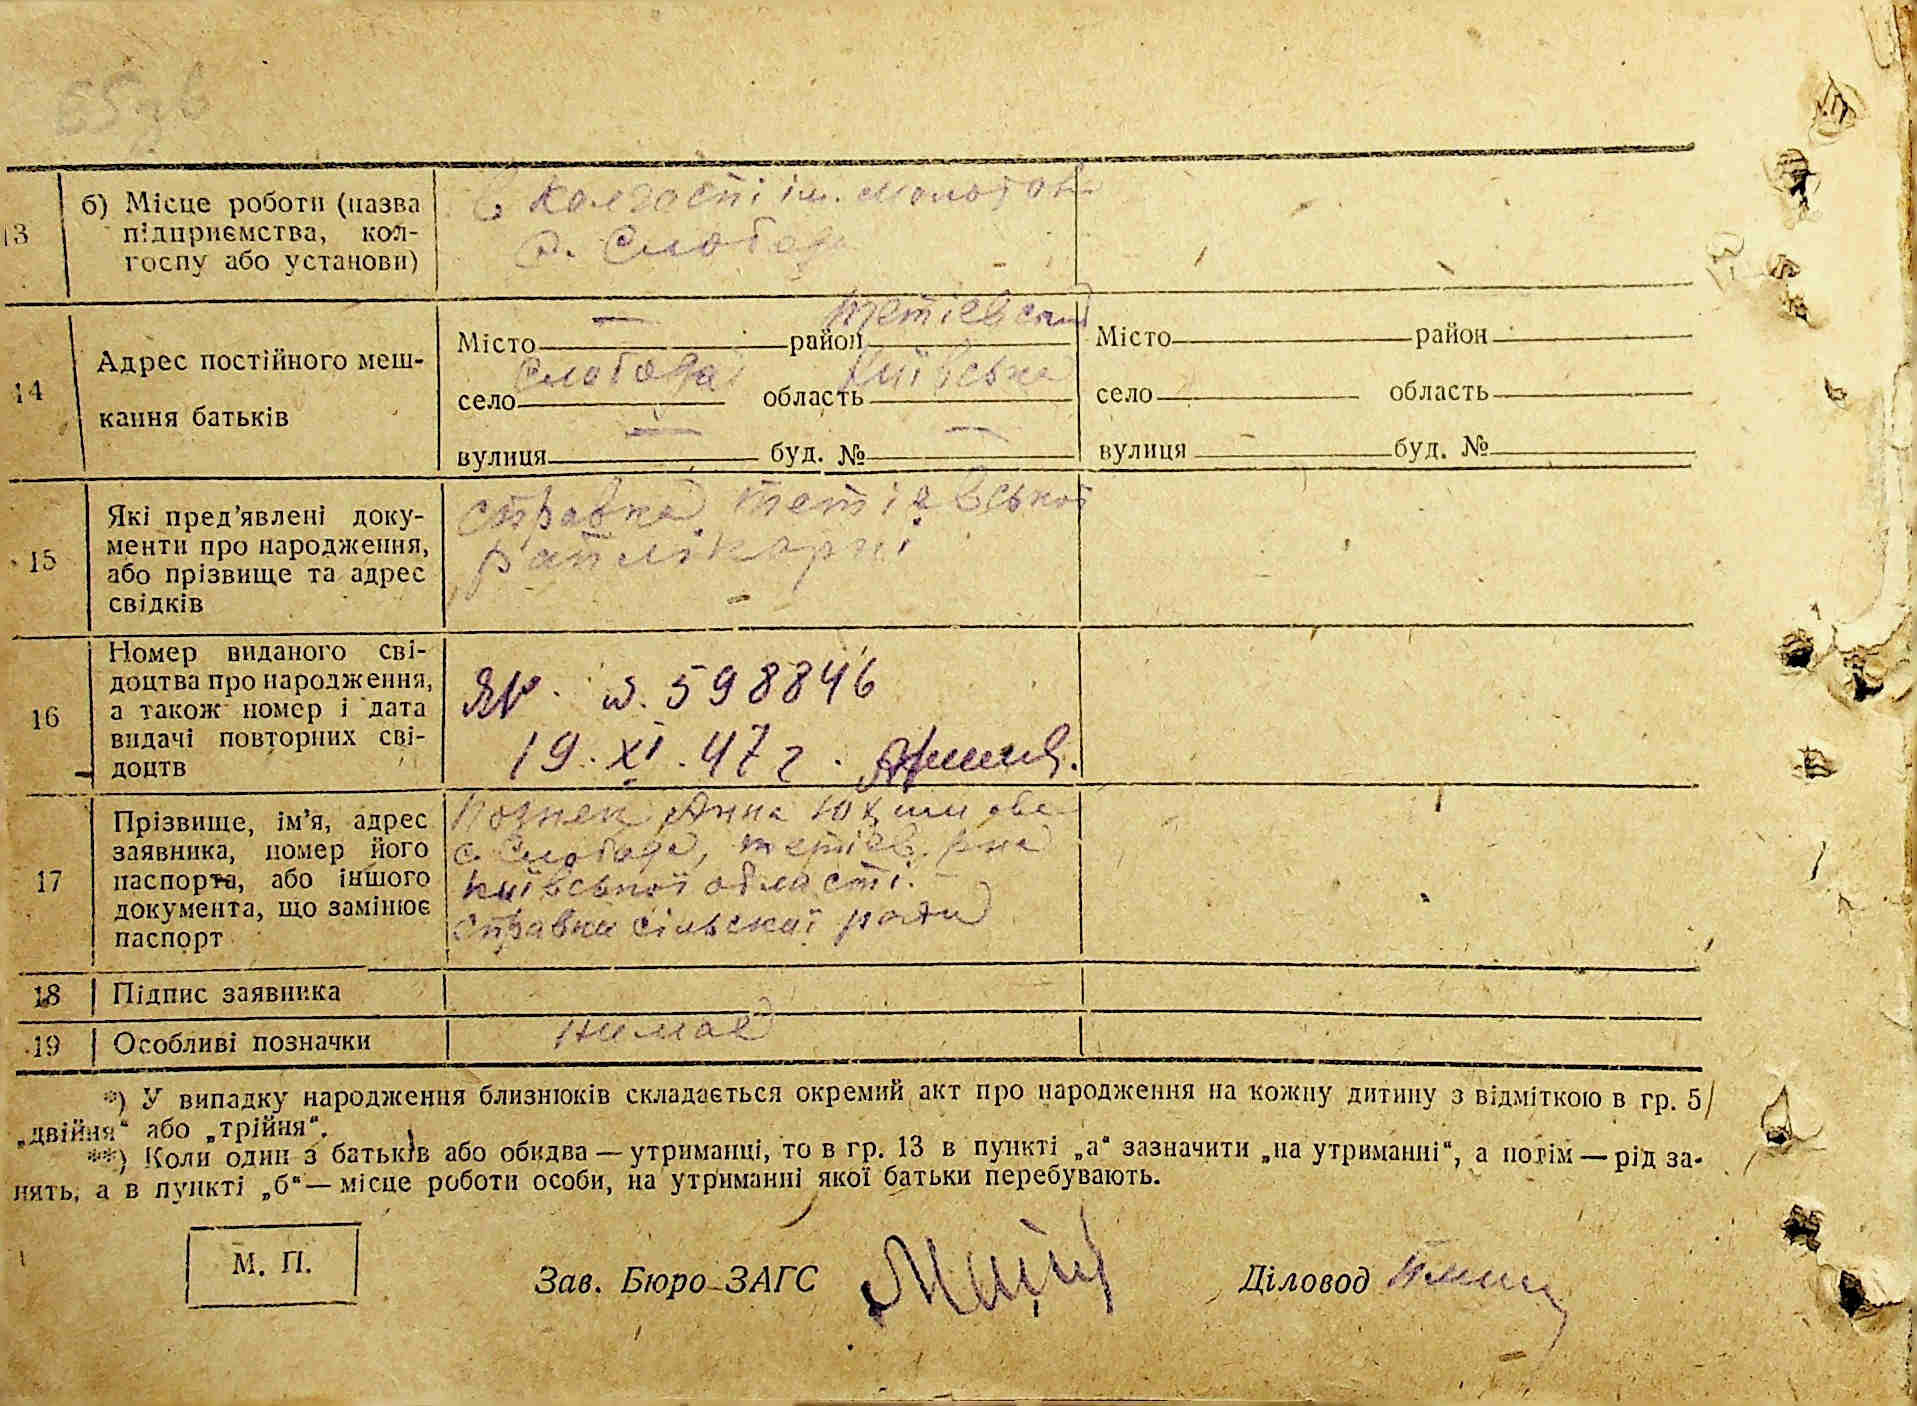 13
б) Місце роботи (назва
підприємства, кол-
госпу або установи)
в колгоспі ім. Молотова
с. Слобода
14
Адрес постійного меш-
кання батьків
Місто — район Тетіевский
село Слобода область Київська
вулиця — буд. № —
Місто район
село область
вулиця буд. №
15
Які пред'явлені доку-
менти про народження,
або прізвище та адрес
свідків
справка Тетіевської
райлікарні
16
Номер виданого сві-
доцтва про народження,
а також номер і дата
видачі повторних сві-
доцтв
598846
19. XI. 47 г.
17
Прізвище, ім'я, адрес
заявника, номер його
паспорта, або іншого
документа, що замінює
паспорт
Анна Юхимова
с. Слобода, Тетіев. р-на
Київської області.
справка сільскої ради
18
Підпис заявника
19
Особливі позначки
нимає
*) У випадку народження близнюків складається окремий акт про народження на кожну дитину з відміткою в гр. 5/
„двійня“ або „трійня“.
**) Коли один з батьків або обидва — утриманці, то в гр. 13 в пункті „а“ зазначити „на утриманні“, а потім — рід за-
нять, а в пункті „б“ — місце роботи особи, на утриманні якої батьки перебувають.
М. П.
Зав. Бюро ЗАГС
Діловод